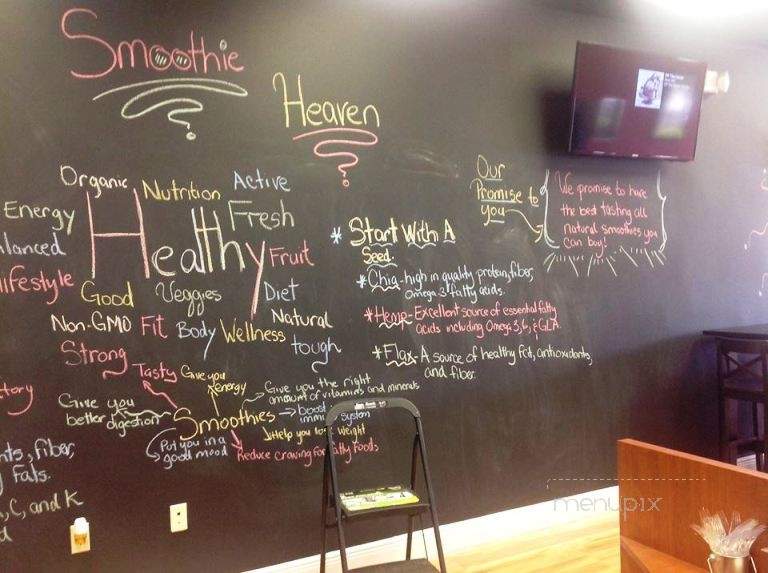 Smoothie
Heaven
Organic
Nutrition
Active
Energy
Healthy
Fresh
alanced
Fruit
lifestyle
Good
Veggies
Diet
Non-GMO
Fit
Body
Wellness
Natural
Strong
tough
Tasty
Give you
energy
Give you the right
amount of vitamins and minerals
Give you
better digestion
Smoothies
boost
imm system
Help you los weight
Put you in a
good mood
Reduce craving for fatty foods
ctory
nts, fiber,
Fats.
, C, and K
d
* Start With A
Seed.
* Chia-high in quality protein, fiber,
Omega 3 fatty acids.
* Hemp- Excellent source of essential fatty
acids including Omega 3, 6, & GLA.
* Flax- A source of healthy fat, antioxidants,
and fiber.
Our
Promise to
you
We promise to have
the best tasting all
natural smoothies you
can buy!
menupix